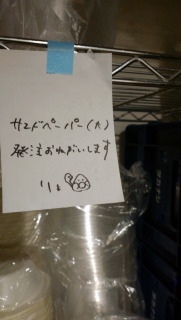 サンドペーパー(大)
発注おねがいします